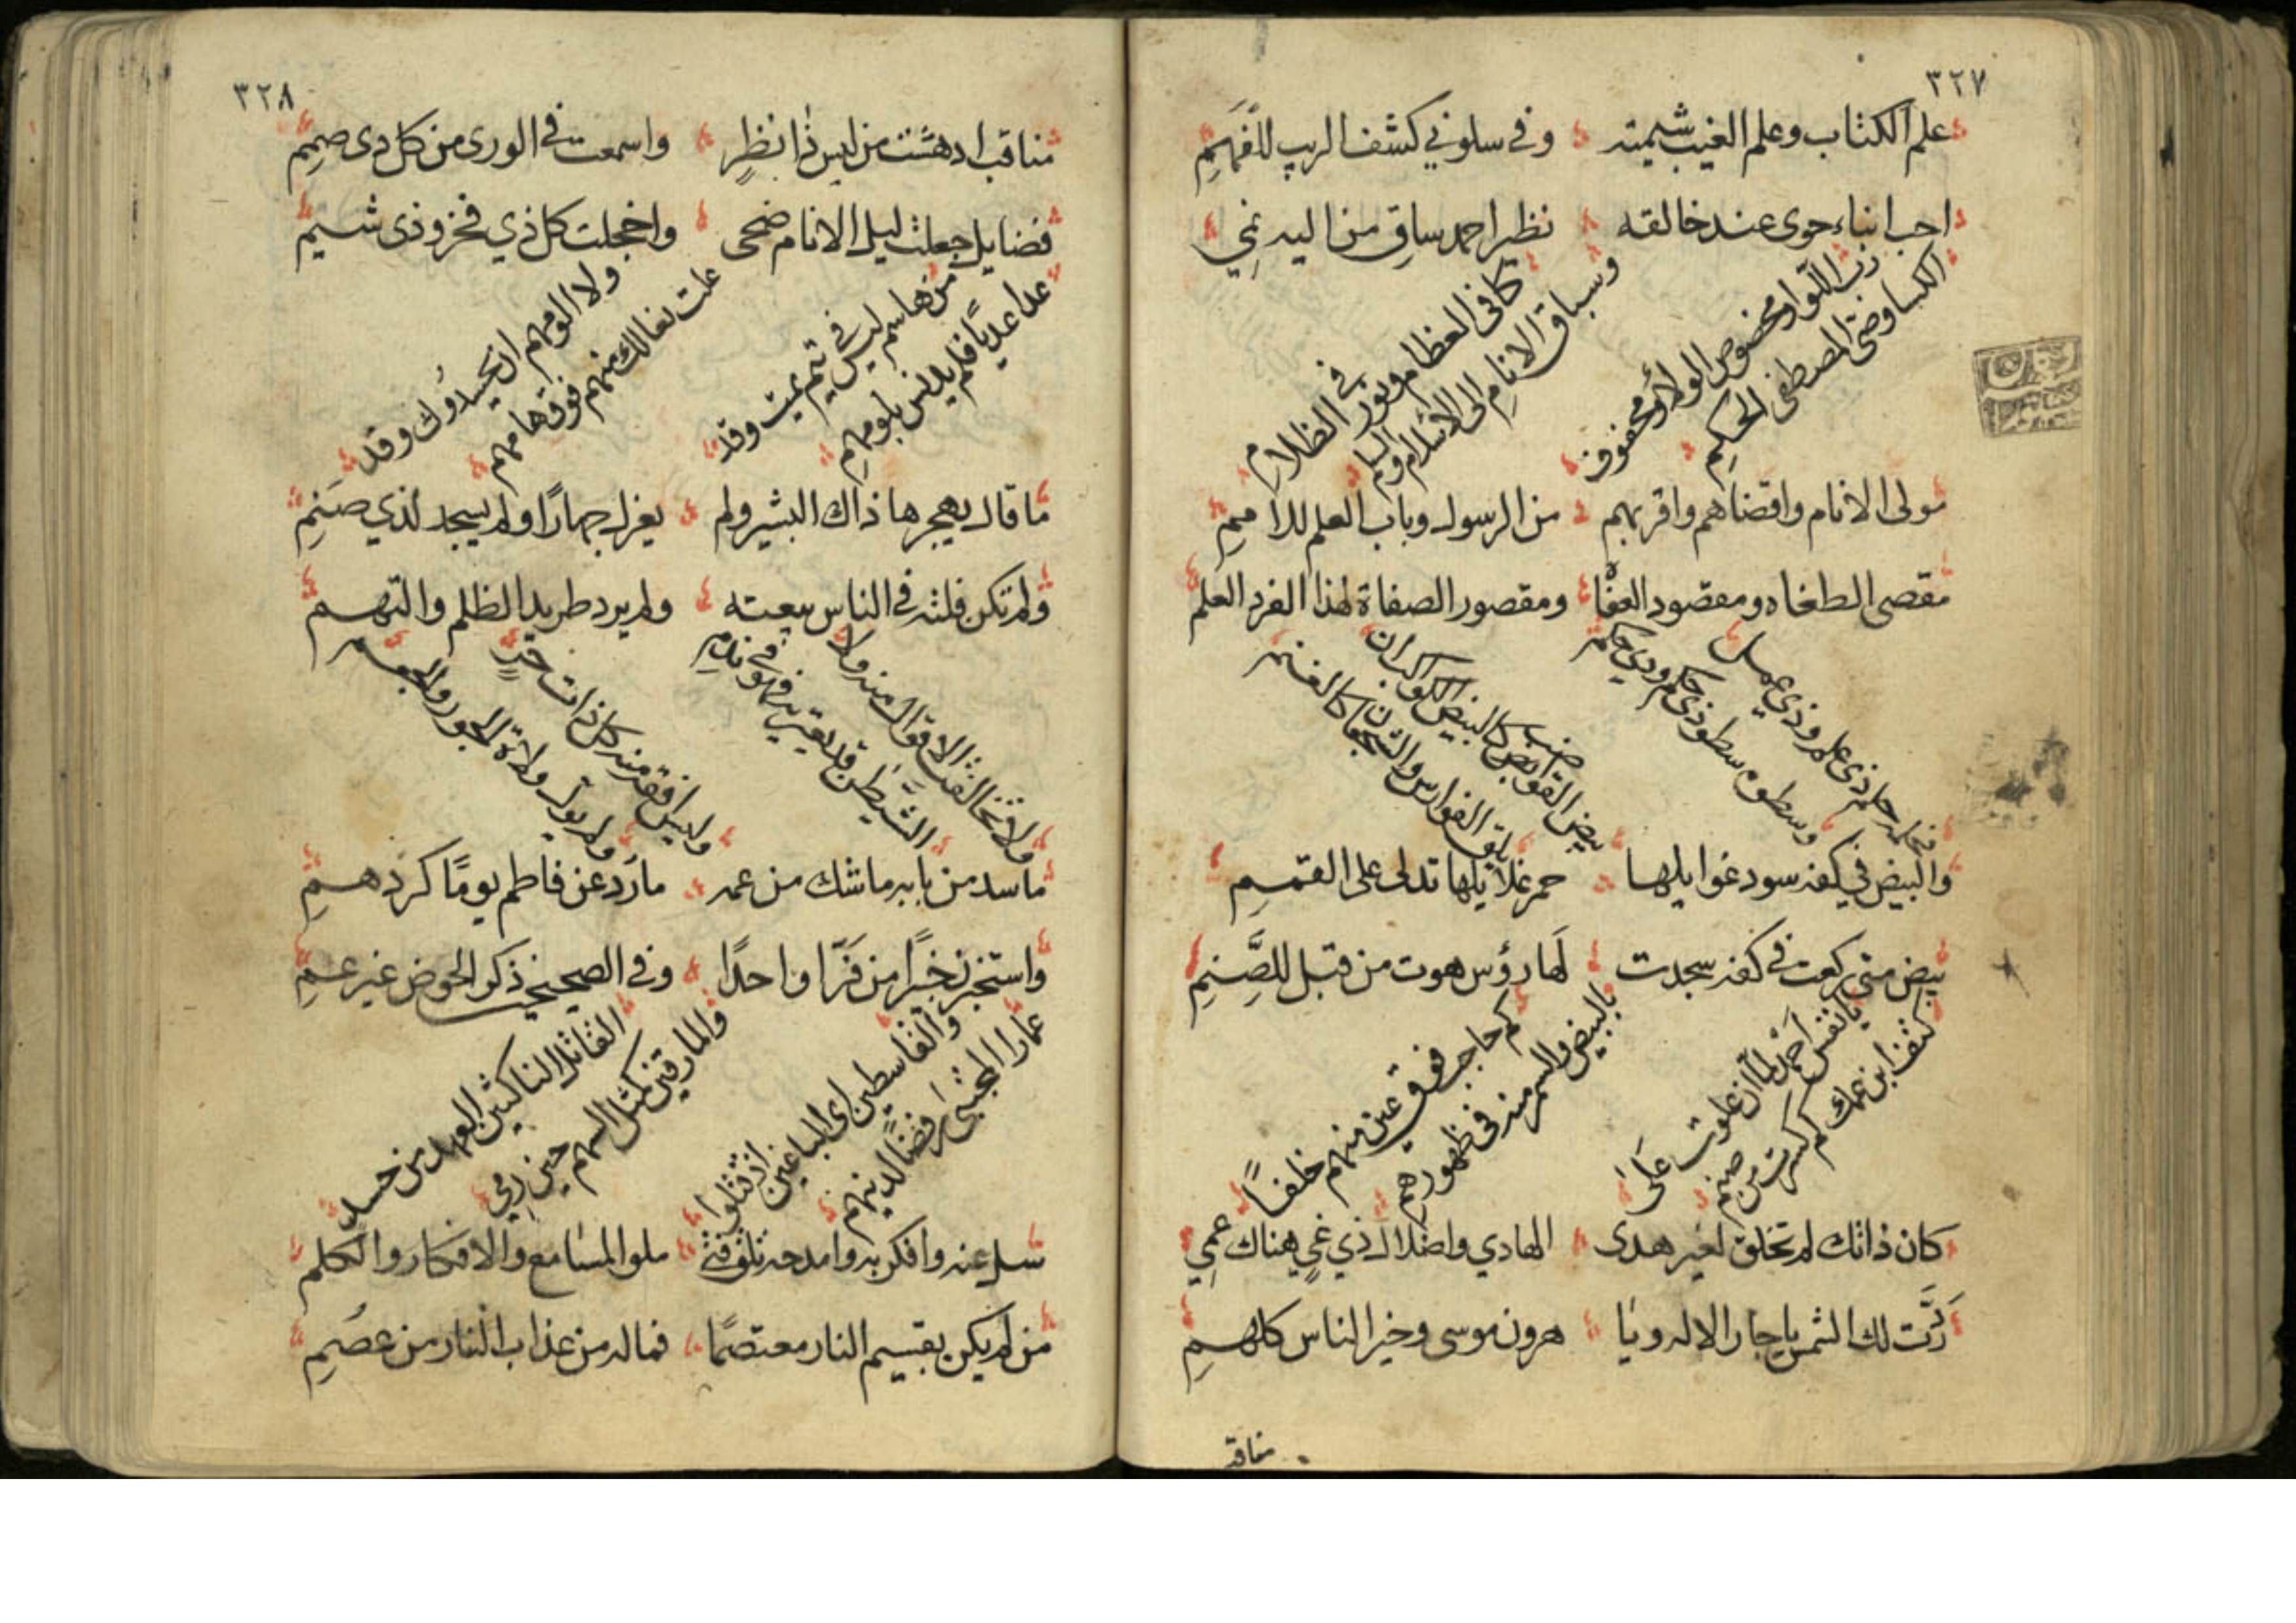 ٣٢٧
علم الكتاب وعلم الغيب شيمته وفي سلوني كشف الريب للفهم
احب ابناء حوى عند خالقه نظير احمد ساق من اليه نمي
رب اللوا ومخصوص الولا ومحفوف
الكسا وصي المصطفى الحكم
كافي العظام ونور في الظلام
وسباق الانام الى الاسلام والسلم
مولى الانام واقضاهم واقربهم من الرسول وباب العلم للامم
مقصى الطغاه ومقصود العفا ومقصور الصفاة لهذا الفرد العلم
حلم ذي علم وذي عمل
وسطوه سطو ذي حكم وذي حكم
بيض القوابض كالبيض الكواكب ان
يلق الفوارس والشجعان كالغنم
والبيض في كفه سود غوايلها حمر غلايلها تدلى على القمم
بيض متى ركعت في كفه سجدت لها رؤس هوت من قبل للصنم
يا نفس احمد لما ان علوت على
كتف ابن عمك كم كسرت من صنم
كم حاجب فوق عين منهم خلفا
بالبيض والسمر منه في ظهورهم
كان ذاتك لم تخلق لغير هدى الهادي واضلال ذي غي هناك عمي
ردت لك الشمس يا جار الاله ويا هرون موسى وخير الناس كلهم
مناقب
٣٢٨
مناقب ادهشت من ليس ذا نظر واسمعت في الورى من كل ذي صمم
فضايل جعلت ليل الانام ضحى واخجلت كل ذي فخر وذي شيم
من هاشم ليس في تيم يميت وقد
عدا عديا فلم يدنس بلومهم
ولا الومهم ان يحسدوك وقد
علت نعالك منهم فوق هامهم
ما قال يهجر ها ذاك البشير ولم يعزل جهارا ولم يسجد لذي صنم
ولم تكن فلتة في الناس بيعته ولم يرد طريد الظلم والتهم
ولا تخالفت الاقوال منه ولا
الشيطن قد يعتريه فهو في ندم
وليس افقه منه كل ذات خدر
ولم يول ولاة الجور والجعم
ما سد من بابه ما شك من عمه ما رد عن فاطم يوما كردهم
واستخبرن خبرا من فر او احدا وفي الصحيحين ذكر الحوض غير عم
والقاسطين اى الباغين اذ قتلوا
عمارا المجتبى رفضا لدينهم
القاتل الناكثين العهد من حسد
والمارقين كمثل السهم حين رمي
سل عنه وافكر به وامدحه تلق فتى ملو المسامع والافكار والكلم
من لم يكن بقسيم النار معتصما فما له من عذاب النار من عصم